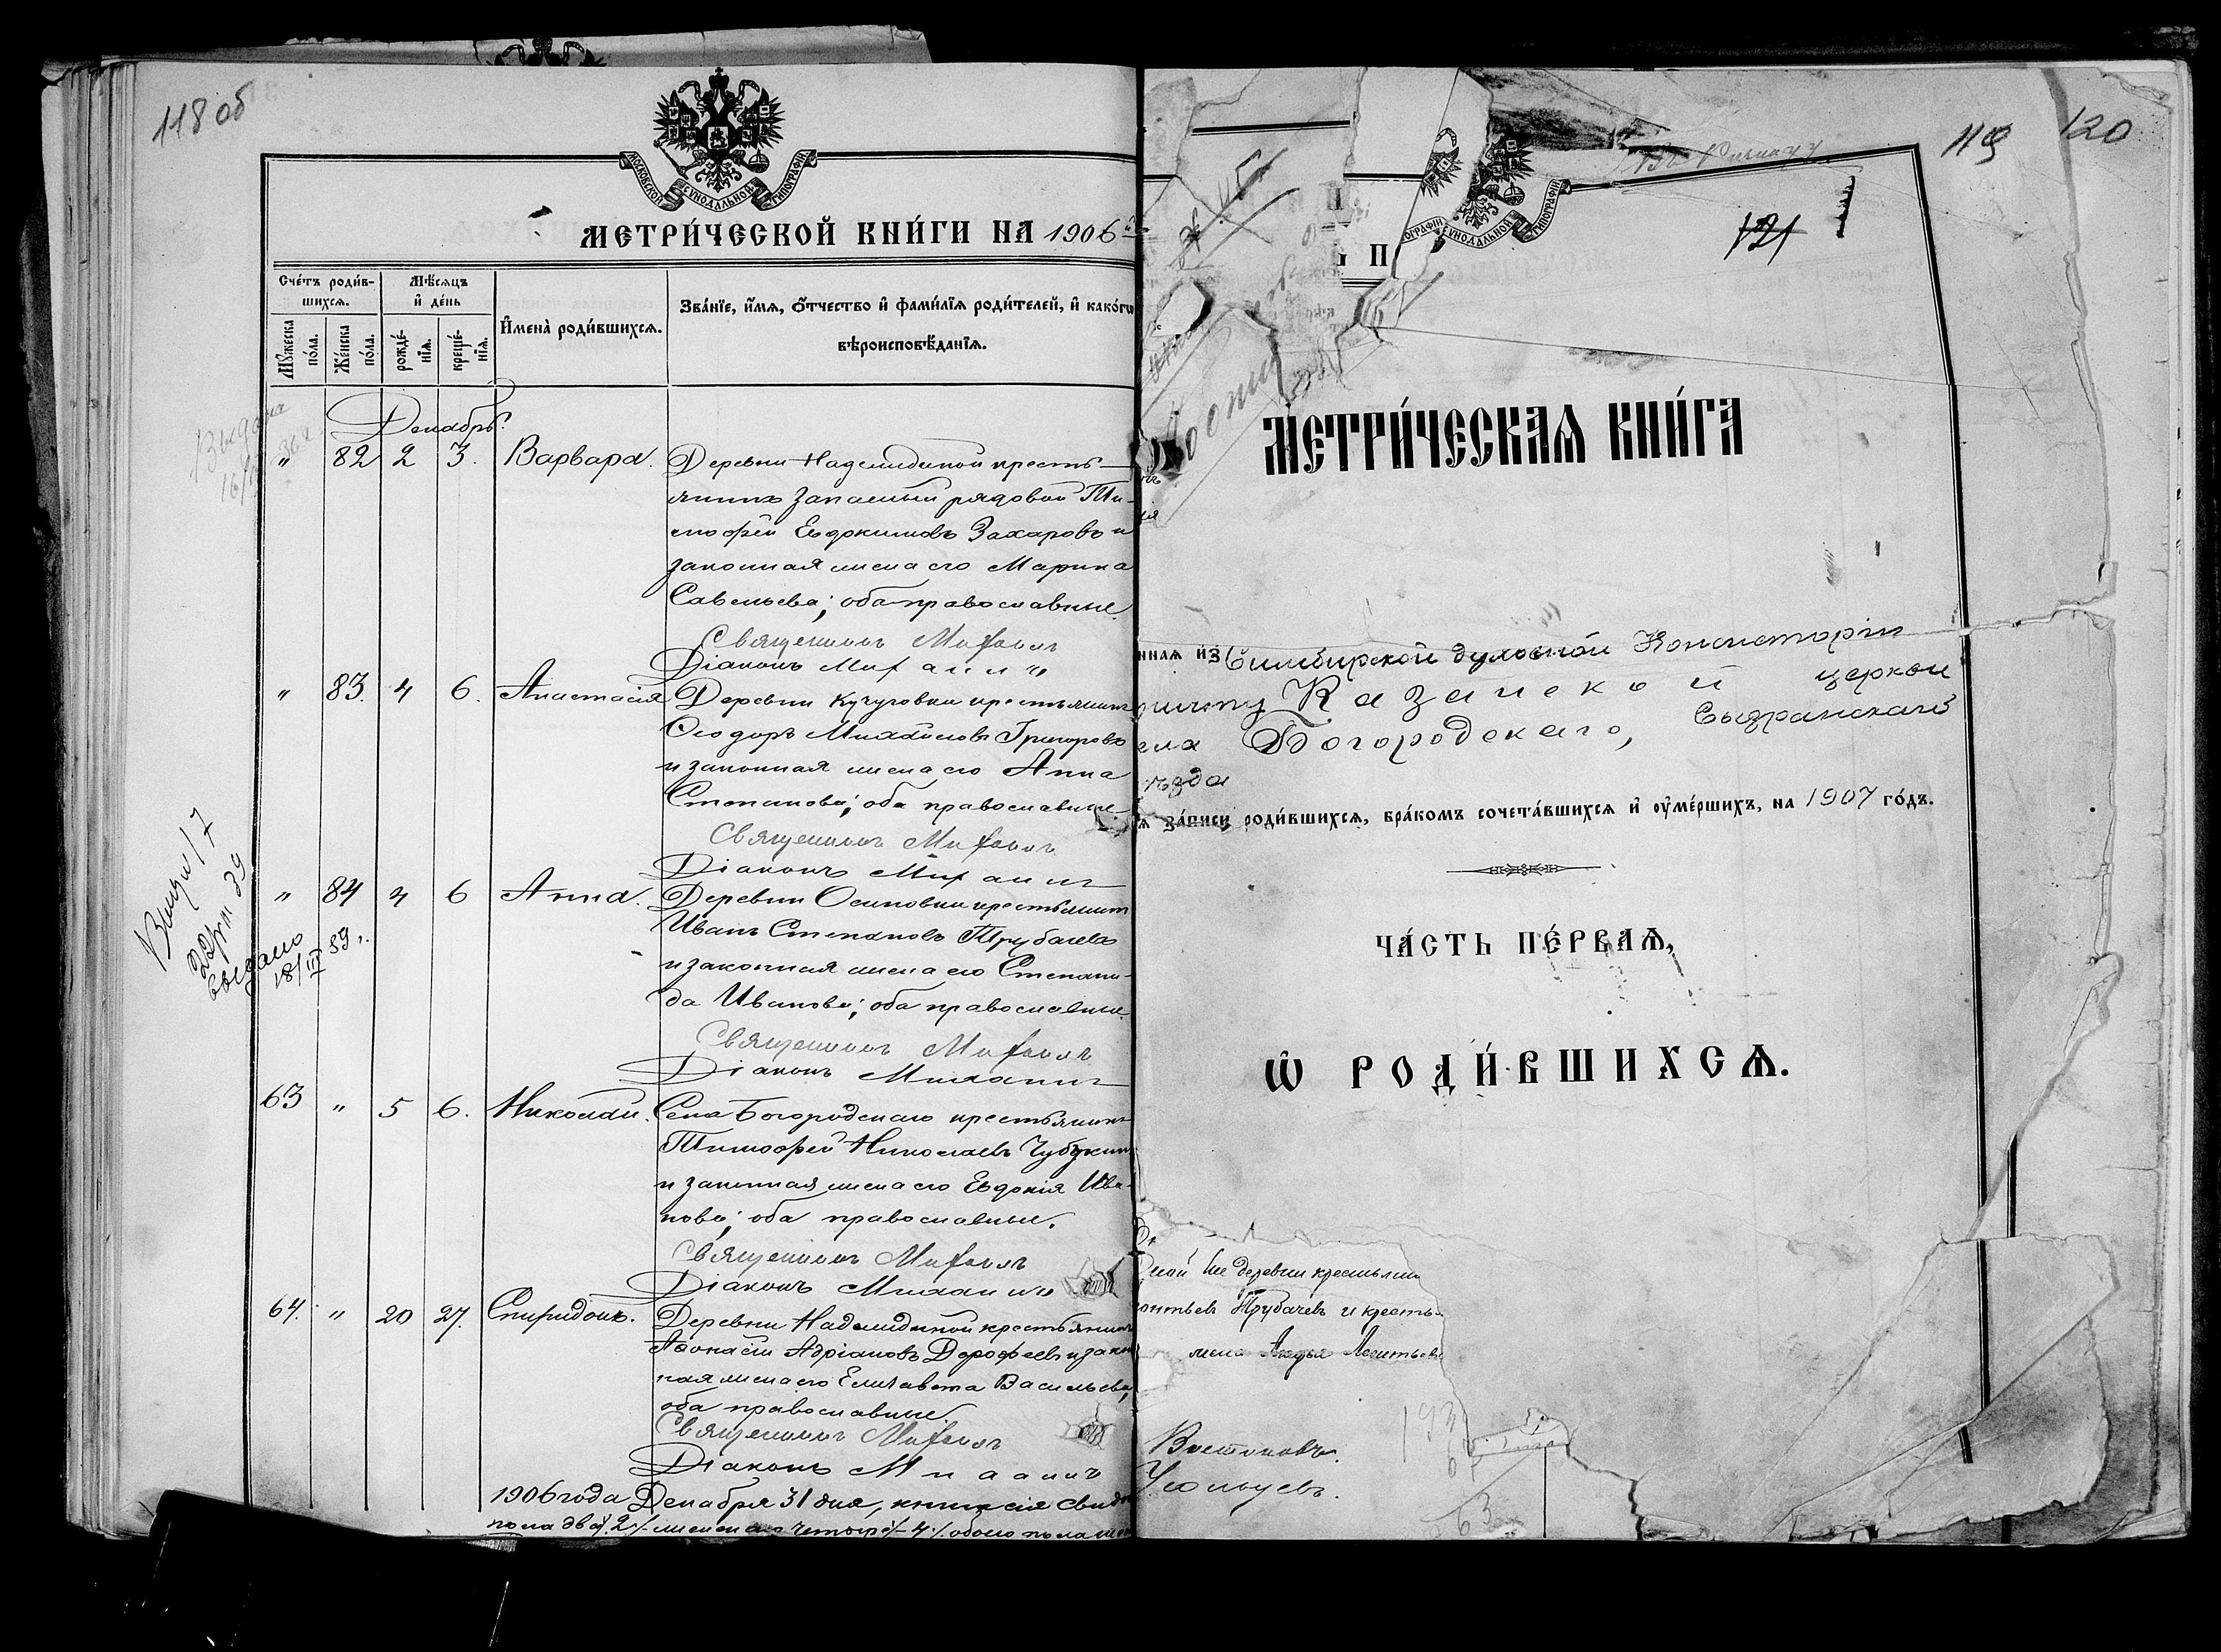 118 об
МОСКОВСКОЙ СѴНОДАЛЬНОЙ ТИПОГРАФІИ
МЕТРИ́ЧЕСКОЙ КНИ́ГИ НА 1906
Сче́тъ роди́в-
шихсѧ.
Мꙋ́жеска
по́ла.
Же́нска
по́ла.
Мѣ́сѧцъ
и҆ де́нь
рожде́-
нїѧ.
креще́-
нїѧ.
И҆мена̀ роди́вшихсѧ.
Зва́нїе, и҆́мѧ, ѻ҆́тчество и҆ фами́лїѧ роди́телей, и҆ како́гѡ
вѣроисповѣ́данїѧ.
Декабрь.
" 82 2 3. Варвара. Деревни Надеждиной кресть-
янинъ запасный рядовой Ти-
мофей Евдокимовъ Захаровъ и
законная жена его Марина
Савельева; оба православные
Священникъ Михаилъ
Діаконъ Михаилъ
" 83. 4 6. Анастасія Деревни Кучуговки крестьянинъ
Ѳеодоръ Михайловъ Григорьевъ
и законная жена его Анна
Степанова; оба православные
Священникъ Михаилъ
Діаконъ Михаилъ
" 84 4 6 Анна. Деревни Осиповки крестьянинъ
Иванъ Степановъ Трубачевъ
и законная жена его Степани-
да Иванова; оба православные.
Священникъ Михаилъ
Діаконъ Михаилъ
выдано
18/III 39 г.
63 " 5 6. Николай. Села Богородскаго крестьянинъ
Тимофей Николаевъ Чубукин
и законная жена его Евдокія Ива-
нова; оба православные.
Священникъ Михаилъ
Діаконъ Михаилъ
64. " 20 27. Спиридонъ. Деревни Надеждиной крестьянинъ
Аѳанасій Адріановъ Дороѳеевъ и закон
ная жена его Елизавета Васильева,
оба православные.
Священникъ Михаилъ
Діаконъ Михаилъ
1906 года Декабря 31 дня, книга сія свид
пола два /2/ женскаго четыре /4/ обоего пола
119 120
121
ОГРАФІИ СѴНОДАЛЬНОЙ ТИПОГРАФІИ
МЕТРИ́ЧЕСКАѦ КНИ́ГА
ннаѧ и҆з Симбирской духовной Консисторіи
ричту Казанской церкви
ела Богородскаго, Сызранскаго
ѣзда
ѧ за́писи роди́вшихсѧ, бра́комъ сочета́вшихсѧ и҆ ᲂу҆ме́ршихъ, на 1907 го́дъ.
ЧА́СТЬ ПЕ́РВАѦ,
Ѡ҆ РОДИ́ВШИХСѦ.
ной же деревни крестьянин
онтьевъ Трубачевъ и кресть-
жена Леонтьева
Востоковъ.
Усольцевъ.
63